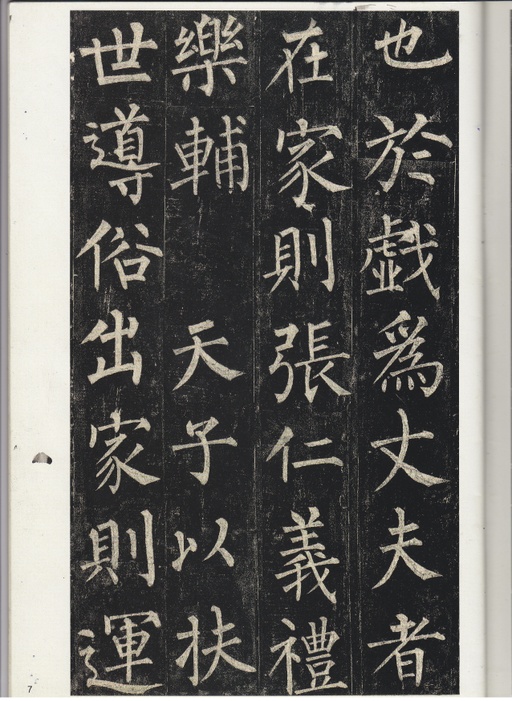 也於戱爲丈夫者
在家則張仁義禮
樂輔天子以扶
世導俗出家則運
7